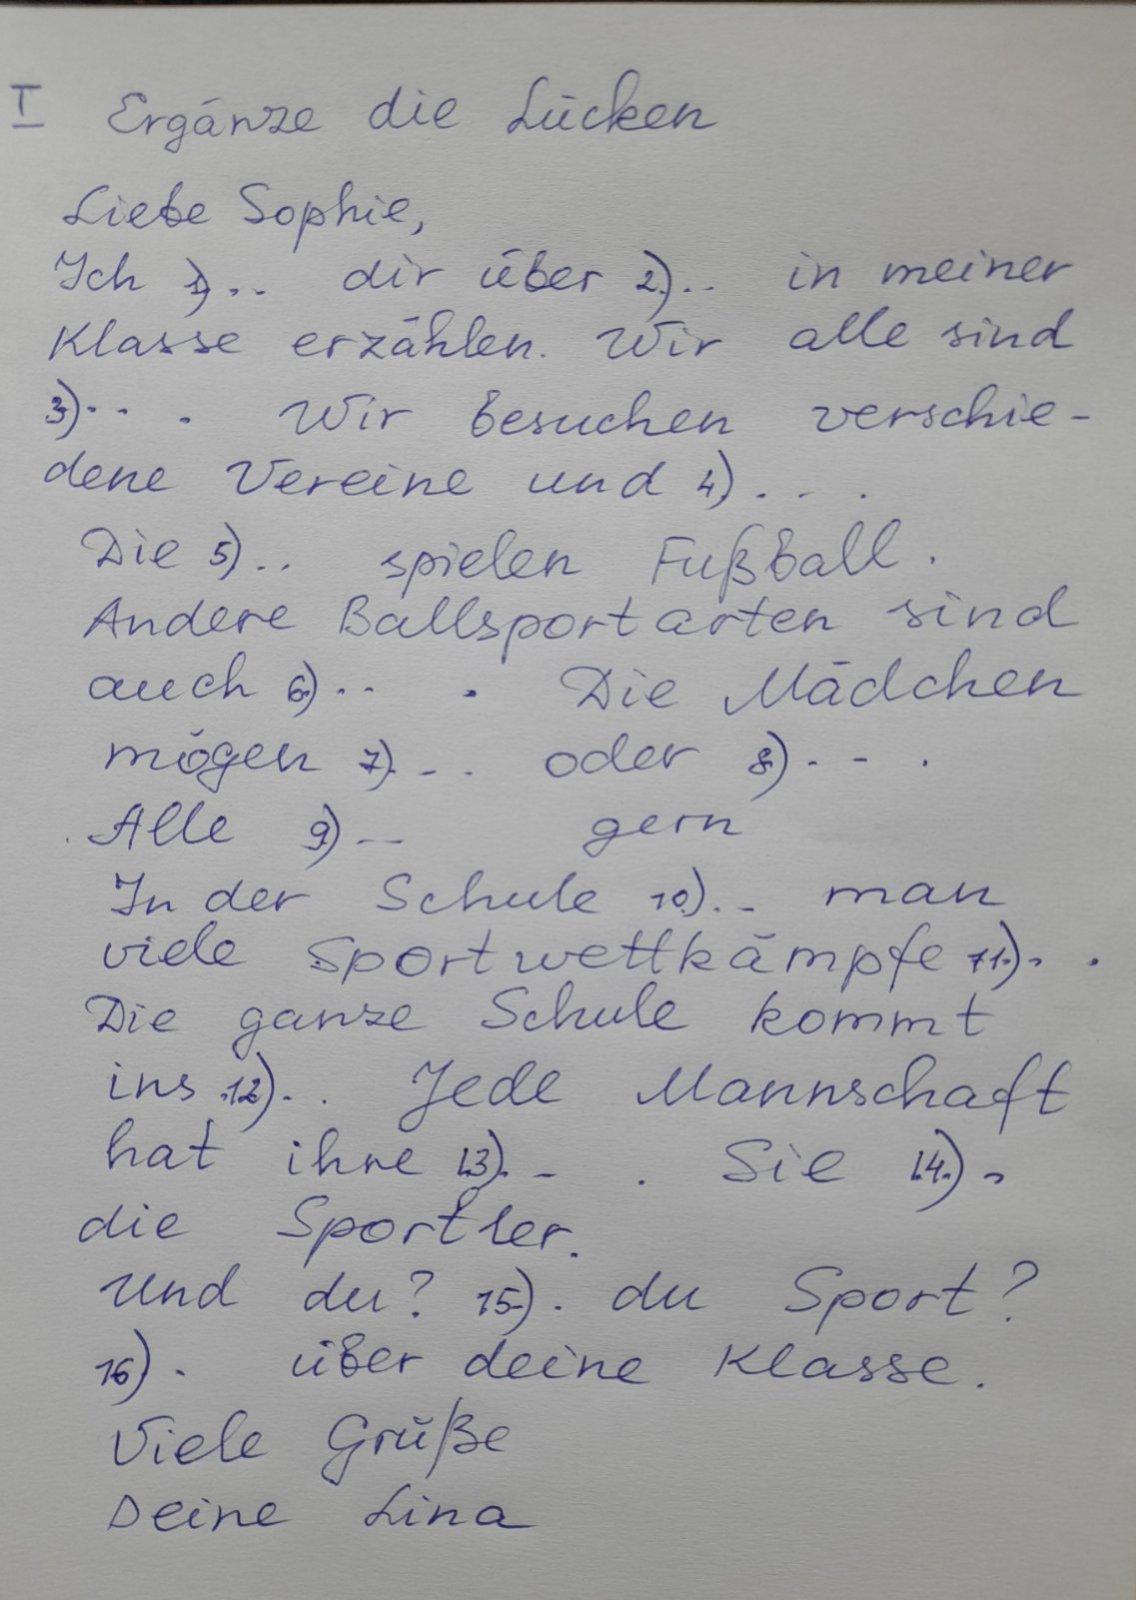 I Ergänze die Lücken
Liebe Sophie,
Ich 1).. dir über 2).. in meiner
Klasse erzählen. Wir alle sind
3)... . Wir besuchen verschie-
dene Vereine und 4)... .
Die 5).. spielen Fußball.
Andere Ballsportarten sind
auch 6).. . Die Mädchen
mögen 7)... oder 8)... .
Alle 9).. gern
In der Schule 10).. man
viele Sportwettkämpfe 11). .
Die ganze Schule kommt
ins 12).. Jede Mannschaft
hat ihre 13).. . Sie 14).
die Sportler.
Und du? 15). du Sport?
16). über deine Klasse.
Viele Grüße
Deine Lina